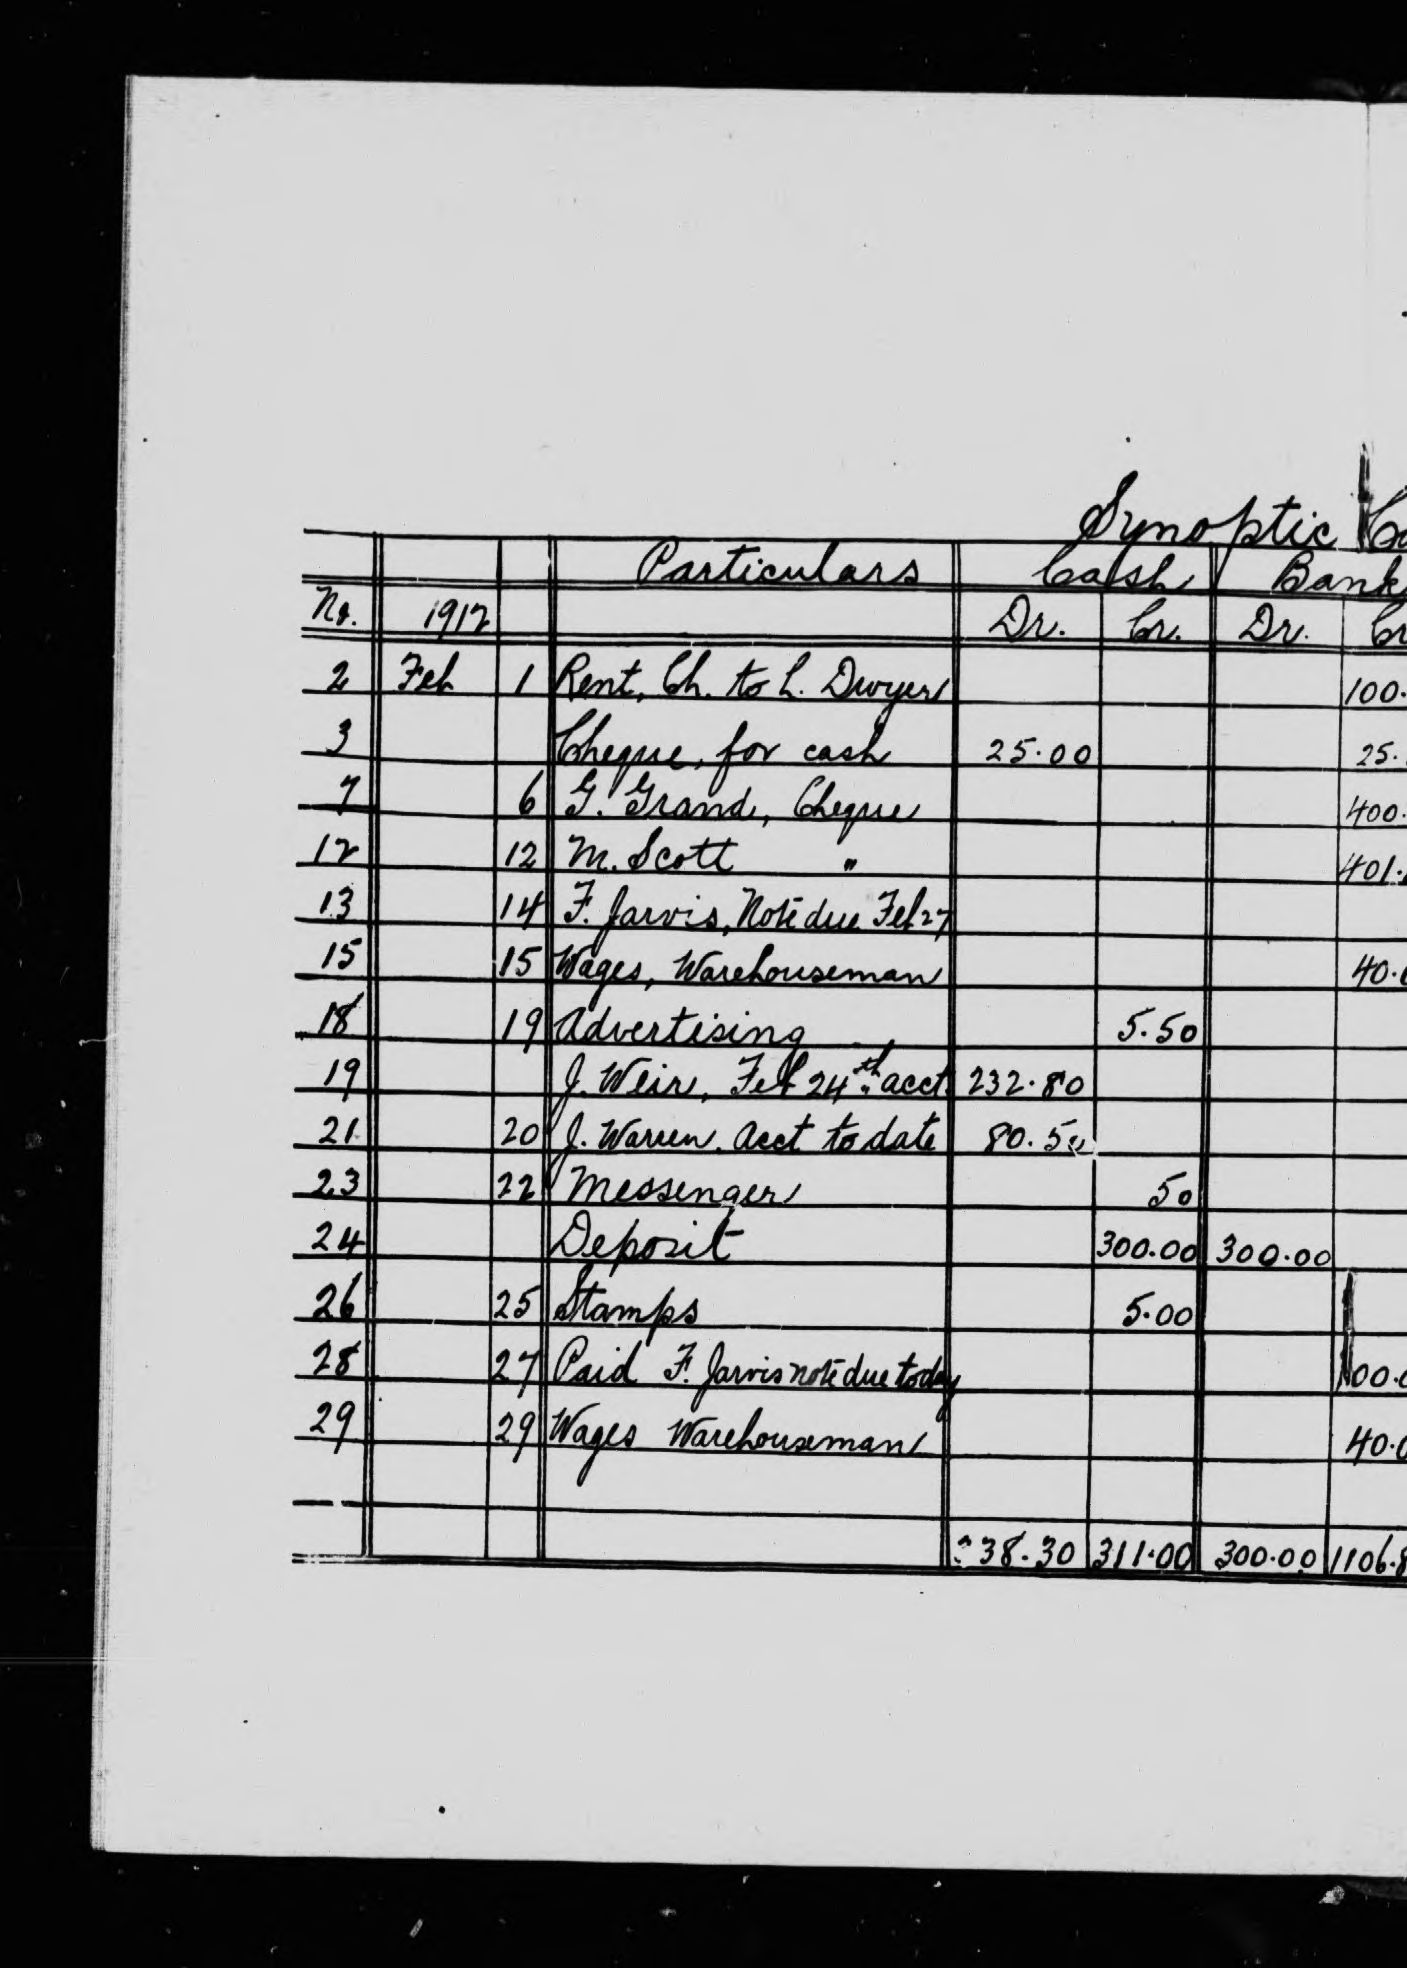 Synoptic Ca
Particulars Cash Bank
No. 1912 Dr. Cr. Dr. Cr
2 Feb 1 Rent, Ch. to L. Dwyer 100.
3 Cheque, for cash 25.00 25.
7 6 G. Grand, Cheque 400.
12 12 M. Scott " 401.
13 14 F. Jarvis, Note due Feb 27
15 15 Wages, Warehouseman 40.0
18 19 Advertising 5.50
19 J. Weir, Feb 24th acct. 232.80
21 20 J. Warren. Acct to date 80.50
23 22 Messenger 50
24 Deposit 300.00 300.00
26 25 Stamps 5.00
28 27 Paid F. Jarvis note due today 00.0
29 29 Wages Warehouseman 40.0
338.30 311.00 300.00 1106.8